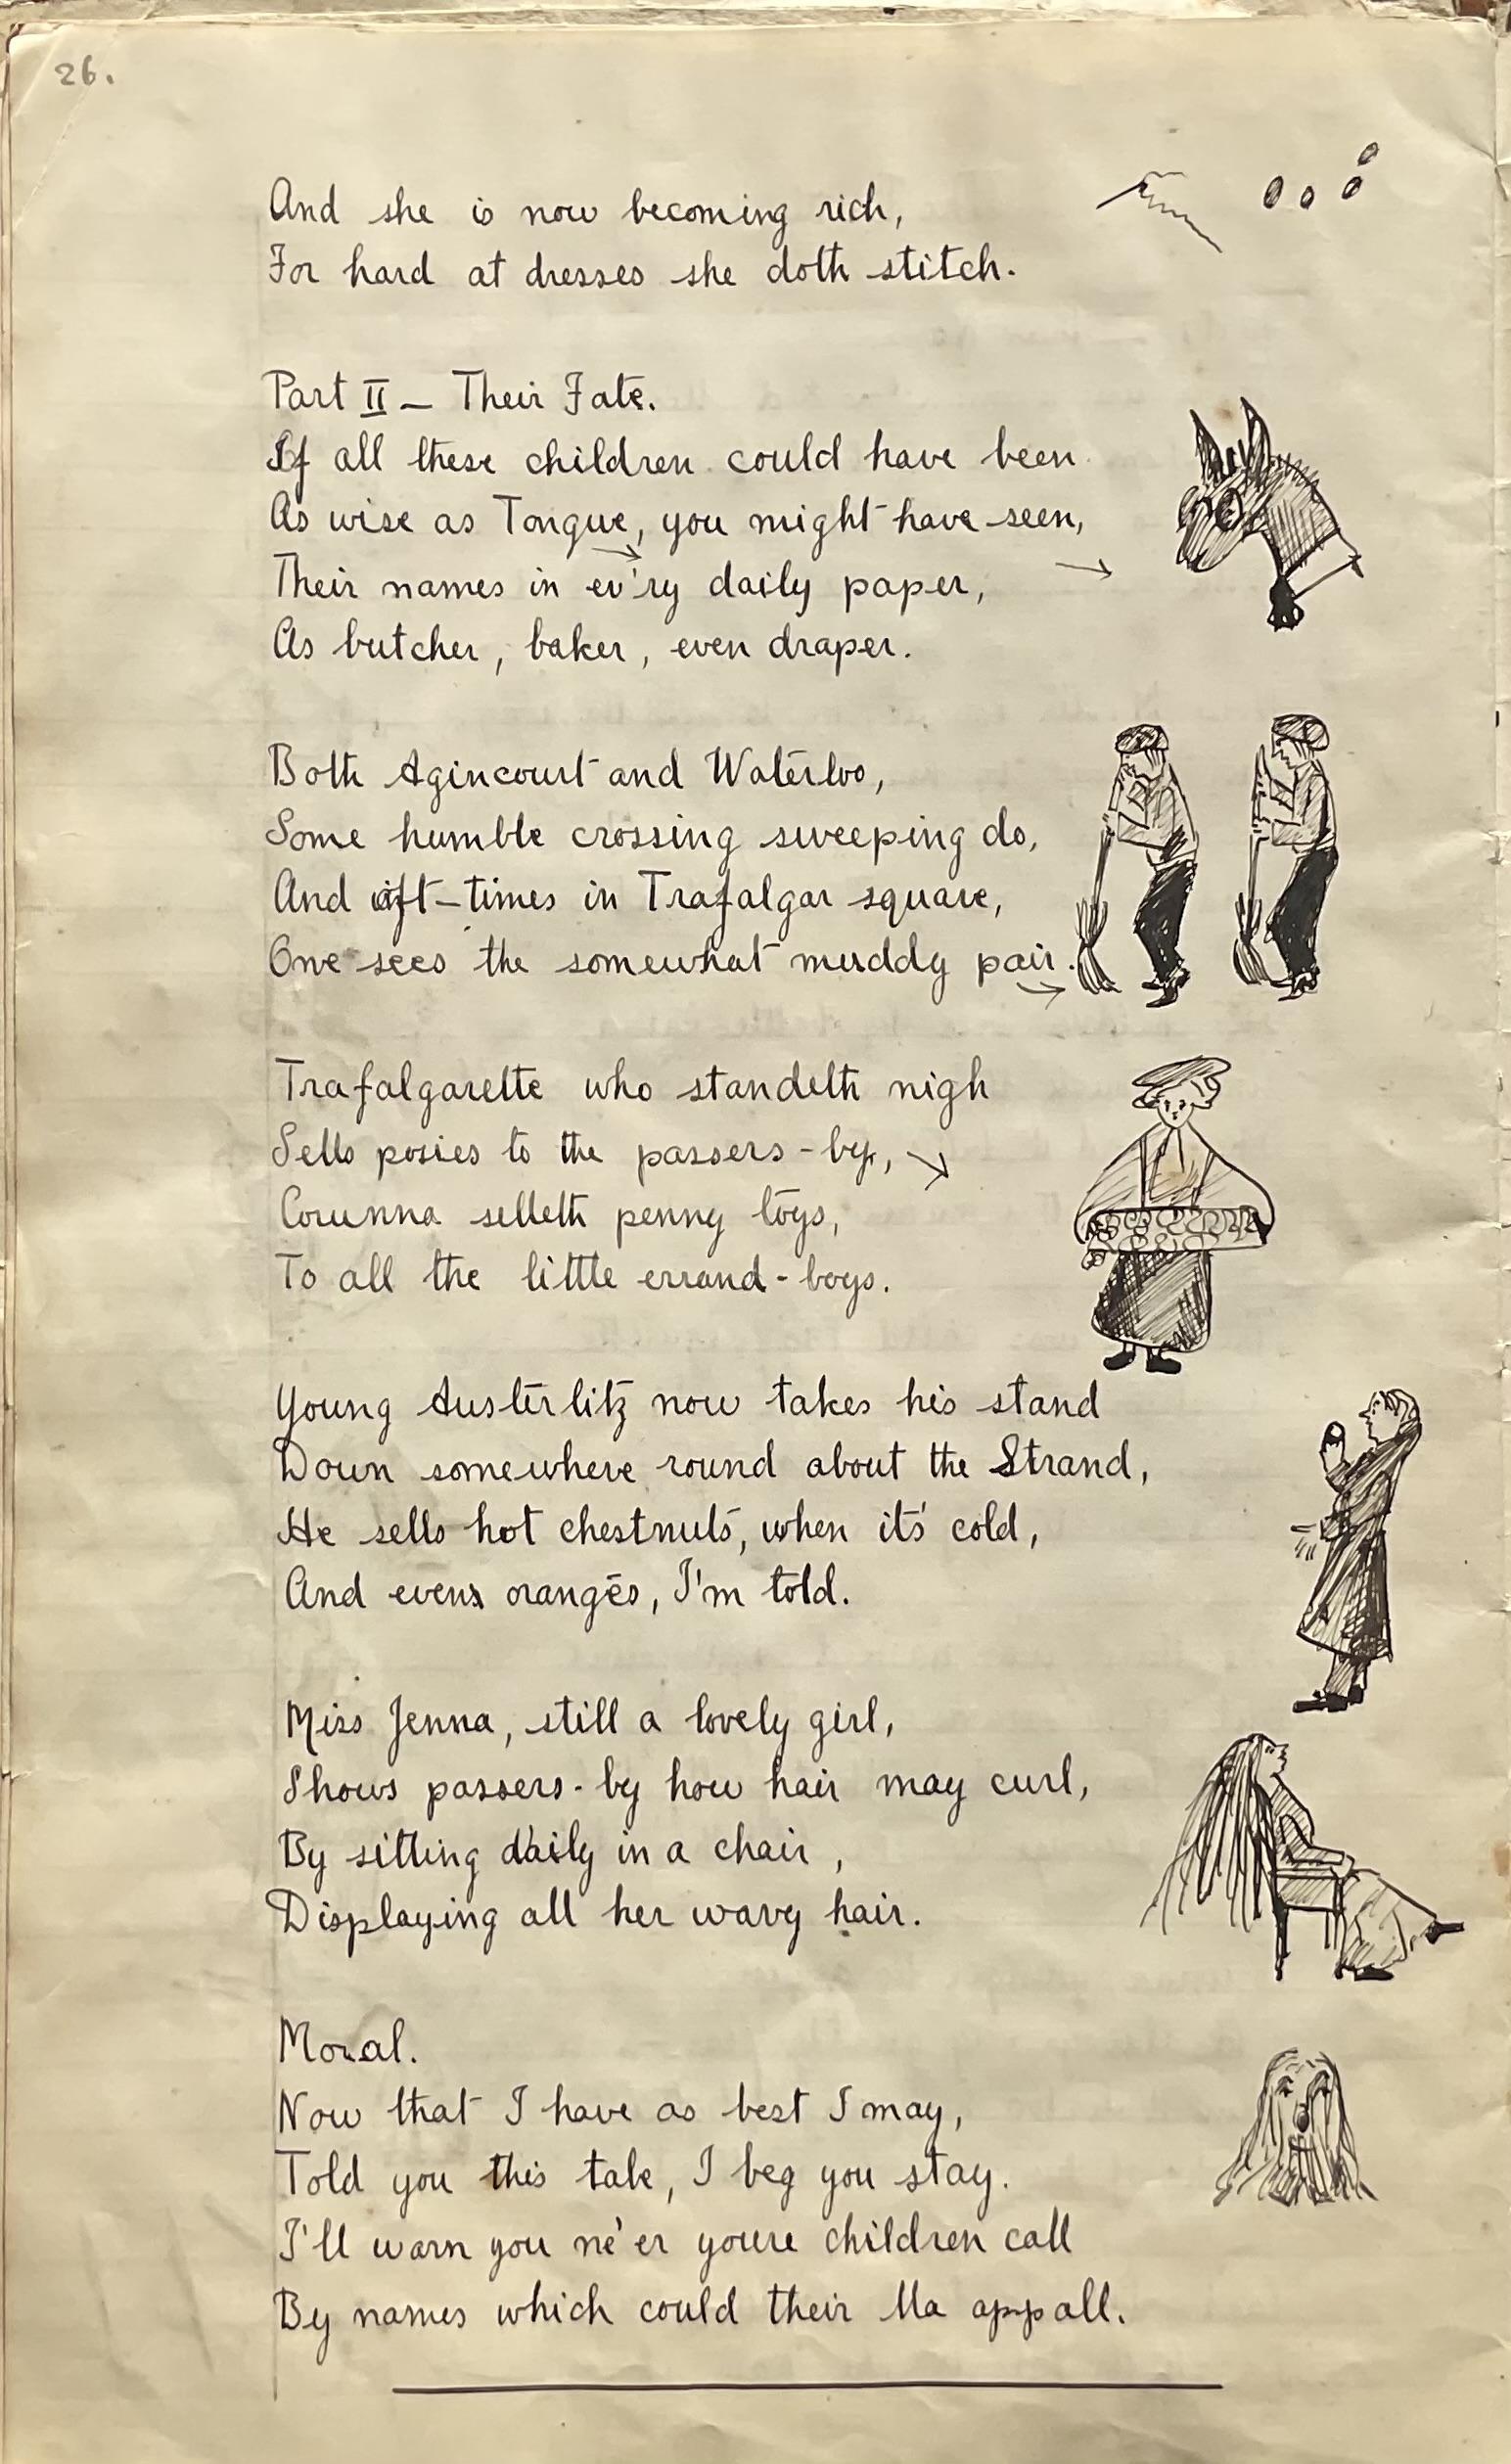 26.
And she is now becoming rich,
For hard at dresses she doth stitch.
Part II — Their Fate.
If all these children could have been
As wise as Tongue, you might have seen,
Their names in ev'ry daily paper,
As butcher, baker, even draper.
Both Agincourt and Waterloo,
Some humble crossing sweeping do,
And oft-times in Trafalgar square,
One sees the somewhat muddy pair.
Trafalgarette who standeth nigh
Sells posies to the passers-by,
Corunna selleth penny toys,
To all the little errand-boys.
Young Austerlitz now takes his stand
Down somewhere round about the Strand,
He sells hot chestnuts, when its' cold,
And even oranges, I'm told.
Miss Jenna, still a lovely girl,
Shows passers-by how hair may curl,
By sitting daily in a chair,
Displaying all her wavy hair.
Moral.
Now that I have as best I may,
Told you this tale, I beg you stay.
I'll warn you ne'er youre children call
By names which could their Ma appall.